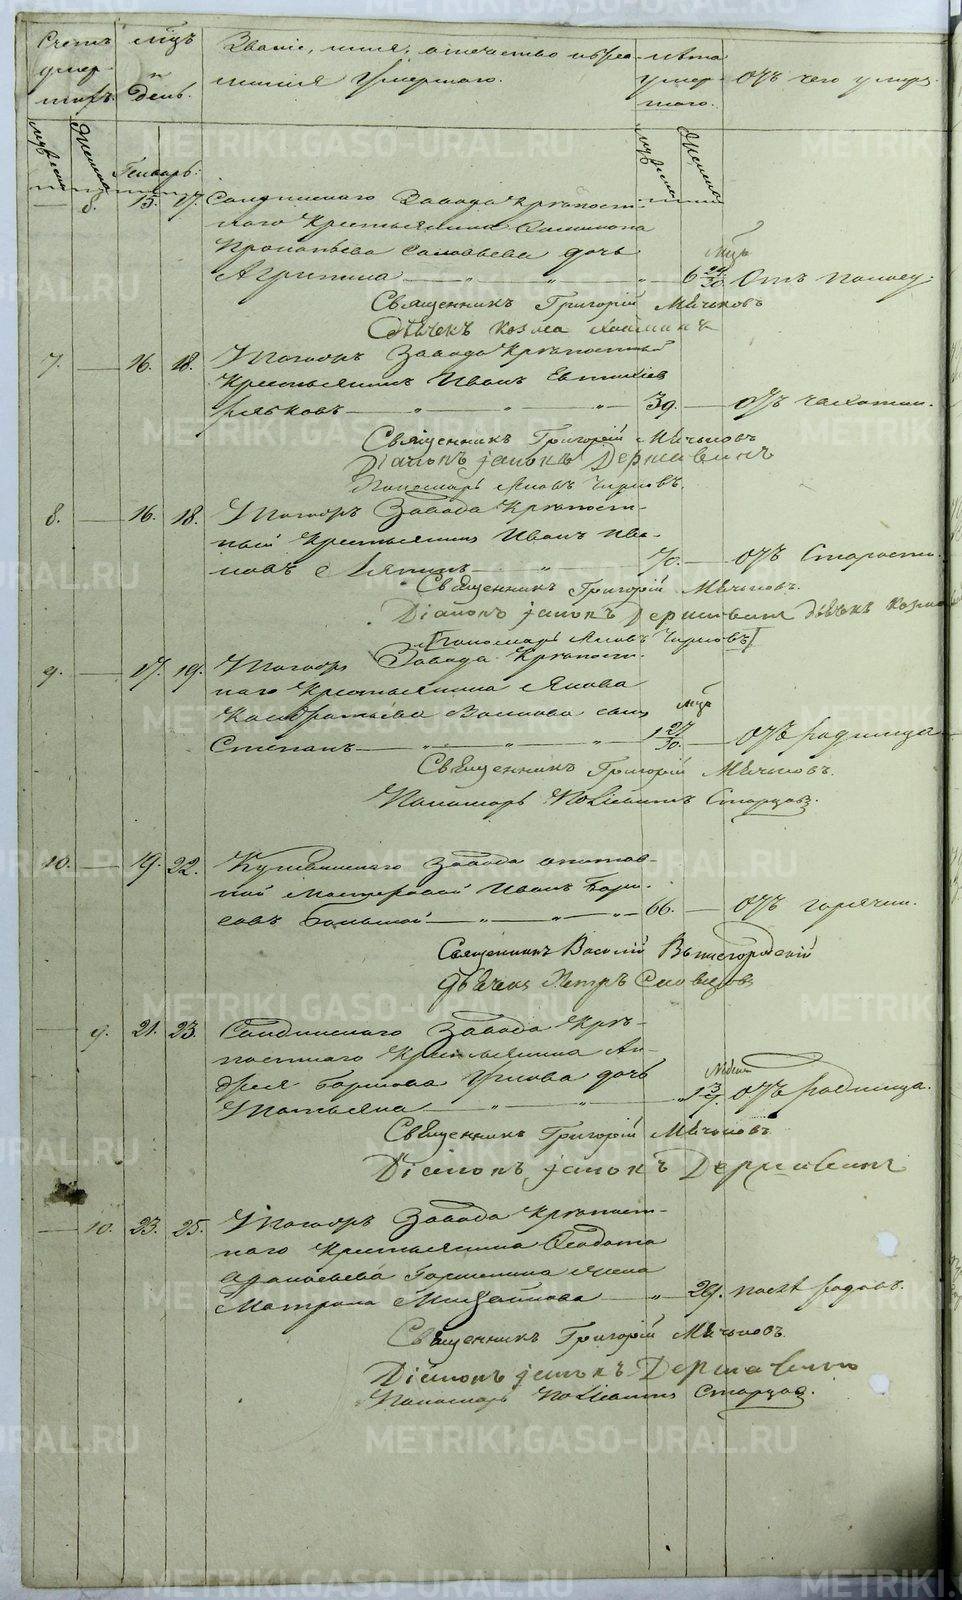 Счетъ умер-шихъ.
Мѣсъ и день.
Званіе, имя, отчество и фа-
милія Умершаго.
Лѣта умер-шаго.
Отъ чего умеръ.
мужеска
женска
Генварь:
мужеска
женска
8. 15. 17. Салдинскаго Завода Крѣпост-
наго Крестьянина
Прокопьева Соловьева дочь
мѣс
Агрипина 6 Отъ поносу.
Священникъ Григорій Мѣчьковъ
Дьячекъ Козма
7. 16. 18. Тогожъ Завода Крѣпостный
Крестьянинъ Иванъ Евтихіев
Рябковъ 39. Отъ чахотки.
Священникъ Григорій Мѣчьковъ
Діаконъ Іаковъ Державинъ
Пономарь Яковъ Чирковъ.
8. 16. 18. Тогожъ Завода Крѣпост-
ный Крестьянинъ Иванъ Ива-
новъ Ляпинъ 70. Отъ Старости.
Священникъ Григорій Мѣчьковъ.
Діаконъ Іаковъ Державинъ Дьячекъ Козма
Пономарь Яковъ Чирковъ
9. 17. 19. Тогожъ Завода Крѣпост-
наго Крестьянина Якова
Кондратьева Волкова сынъ
мѣс
Степанъ 1 27/30. Отъ родимца
Священникъ Григорій Мѣчьковъ.
Пономарь Старцовъ.
10. 19. 22. Кушвинскаго Завода
мастеровой Иванъ Бори-
совъ Большой 66. Отъ горячки.
Священникъ Василій Вышегородскій
Дьячекъ Петръ Словцовъ
9. 21. 23. Салдинскаго Завода Крѣ-
постнаго Крестьянина Ан-
дрея Борисова Ускова дочь
недѣли
Татьяна 1 3/7. Отъ родимца.
Священникъ Григорій Мѣчьковъ
Діаконъ Іаковъ Державинъ
10. 23. 25. Тогожъ Завода Крѣпост-
наго Крестьянина Ѳеодота
жена
Матрона Михайлова 29. послѣ родовъ.
Священникъ Григорій Мѣчьковъ.
Діаконъ Іаковъ Державинъ
Пономарь Старцовъ.
METRIKI.GASO-URAL.RU